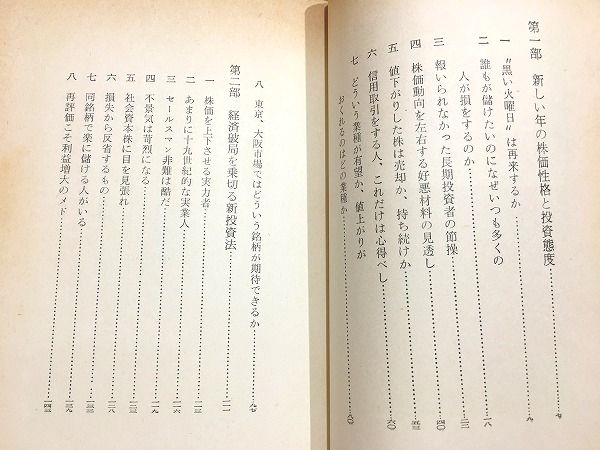 第一部　新しい年の株価性格と投資態度……七
一　〝黒い火曜日〟は再来するか……九
二　誰もが儲けたいのになぜいつも多くの
人が損をするのか……二三
三　報いられなかった長期投資者の節操……四〇
四　株価動向を左右する好悪材料の見透し……五三
五　値下がりした株は売却か、持ち続けか……六〇
六　信用取引をする人、これだけは心得べし
七　どういう業種が有望か、値上がりが
おくれるのはどの業種か……八〇
八　東京、大阪市場ではどういう銘柄が期待できるか……九七
第二部　経済破局を乗切る新投資法……一一一
一　株価を上下させる実力者……一一三
二　あまりに十九世紀的な実業人……一一六
三　セールスマン非難は酷だ……一一九
四　不景気は苛烈になる
五　社会資本株に目を見張れ
六　損失から反省するもの……一二八
七　同銘柄で楽に儲ける人がいる……一三三
八　再評価こそ利益増大のメド……一四三